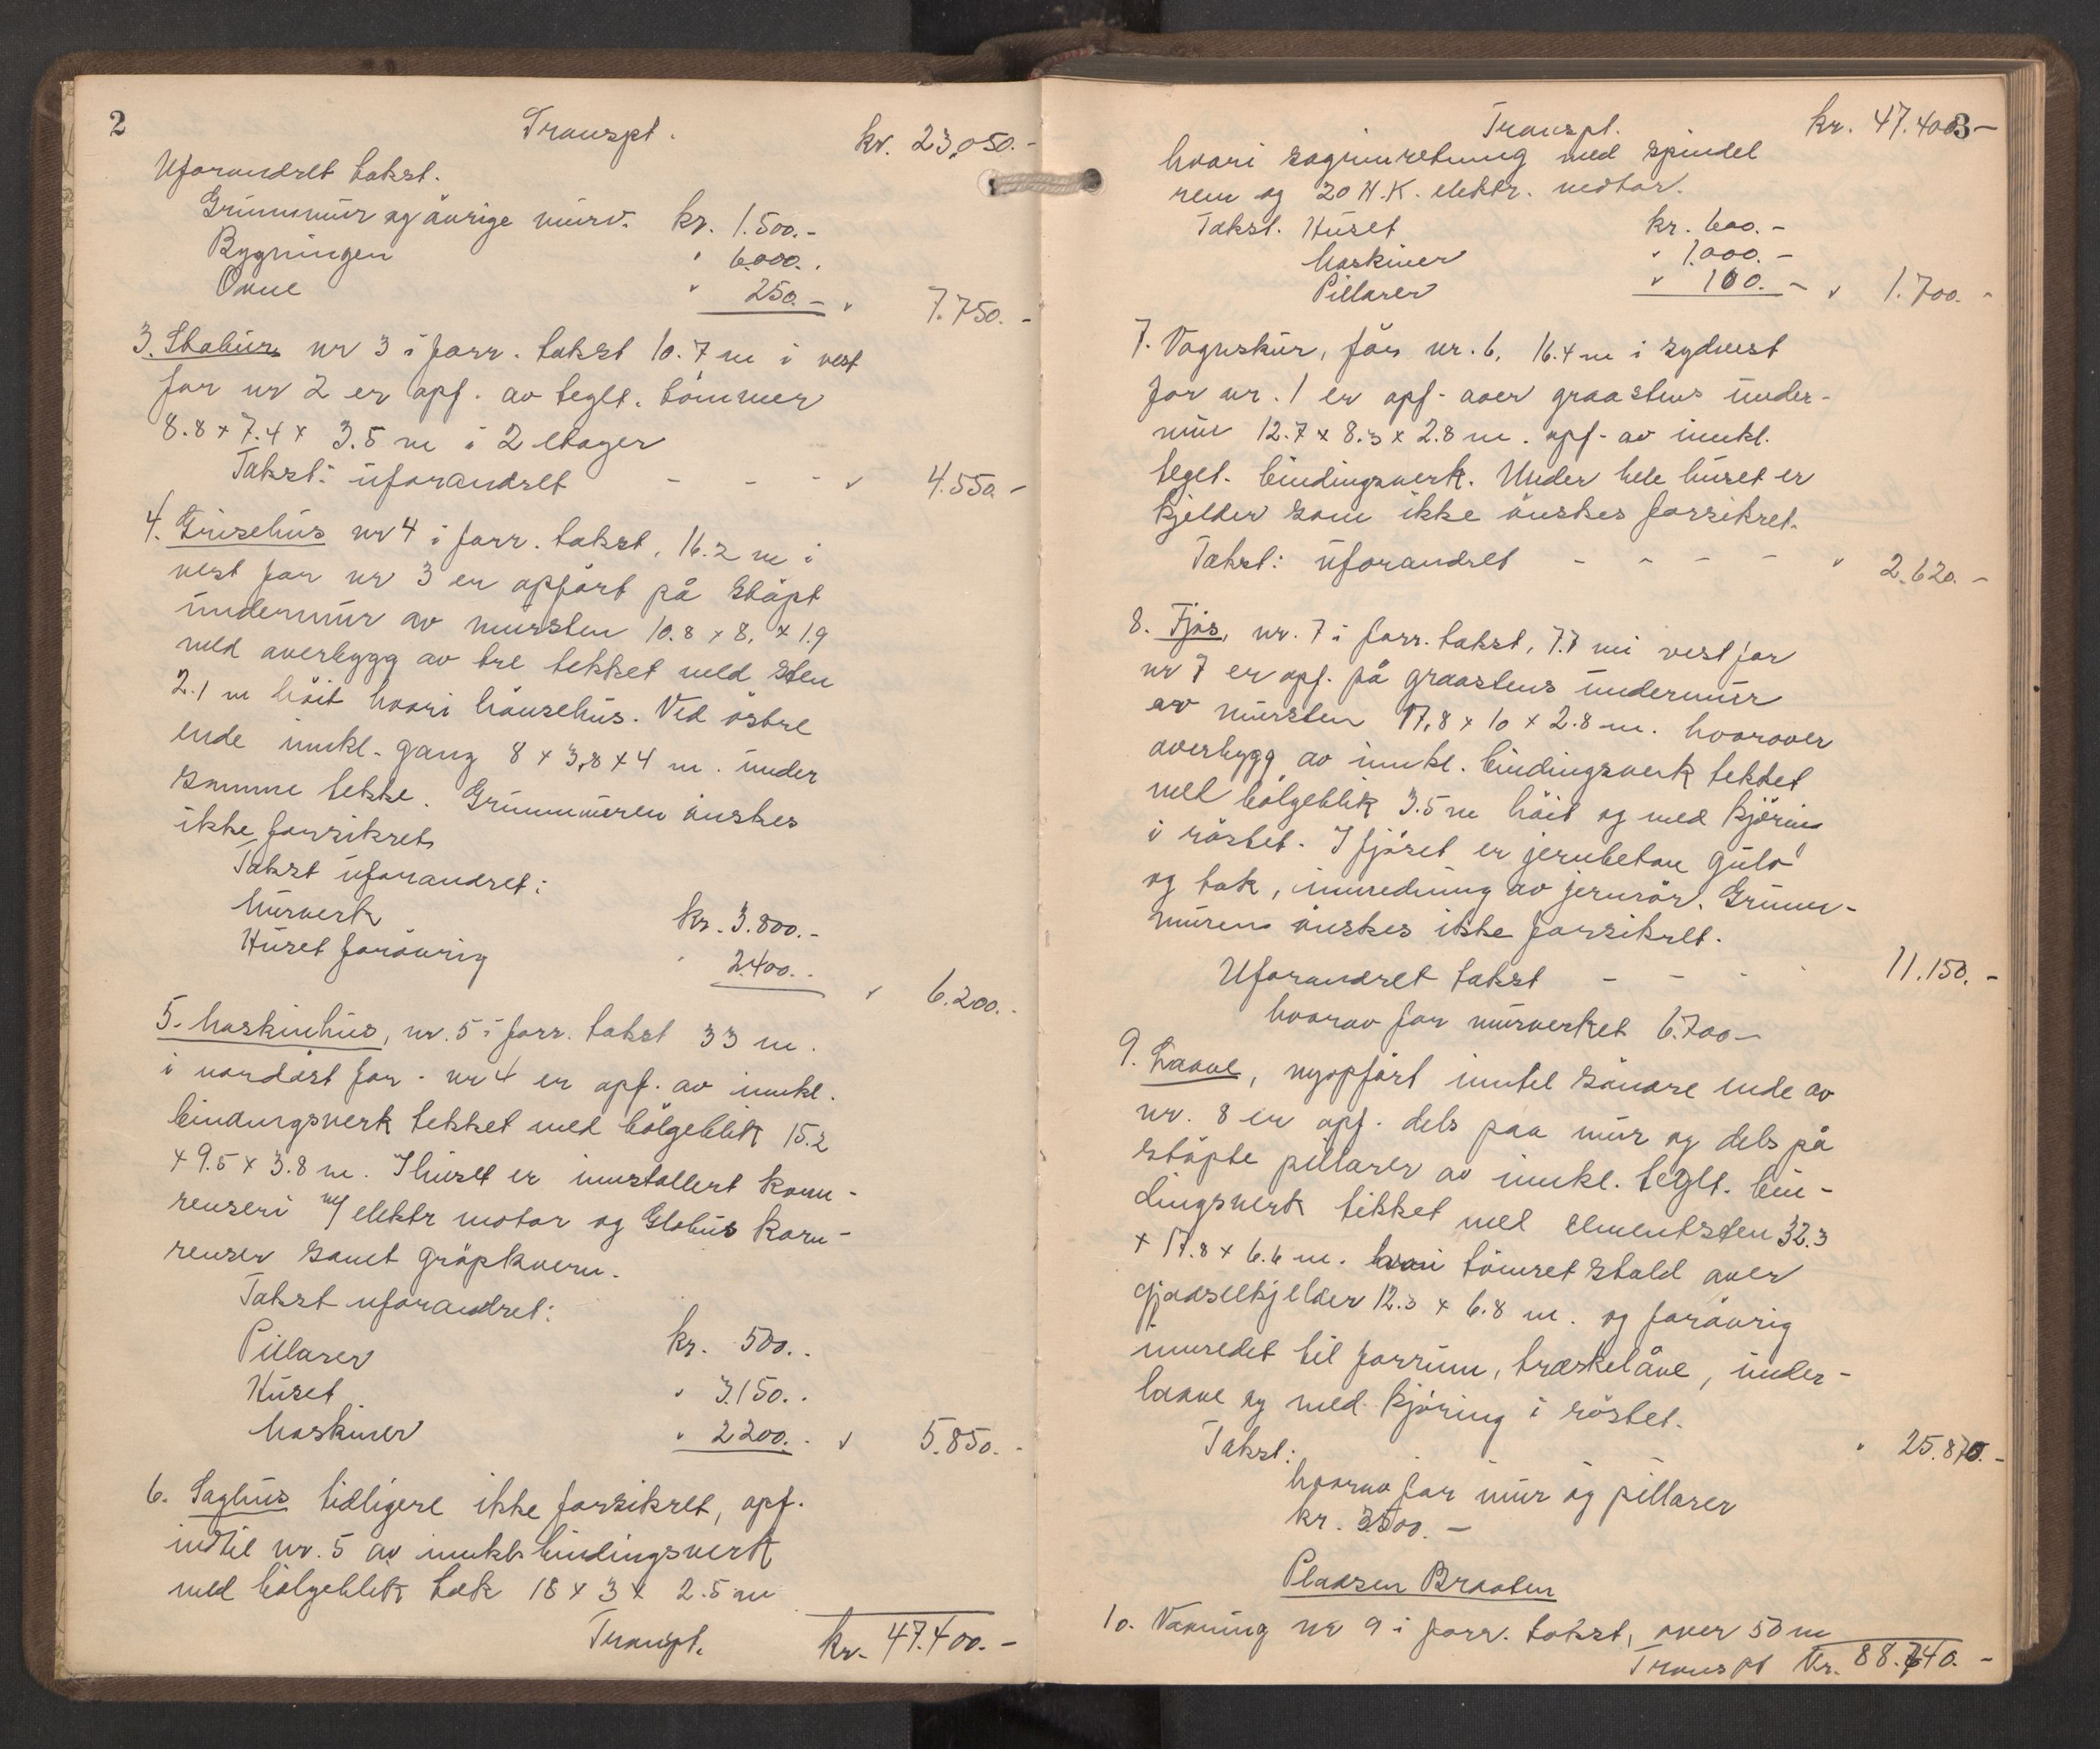 2
Transpt.
kr. 23,050.-
Uforandret takst.
Grunnmur og øvrige murv. kr. 1.500.-
Bygningen " 6.000.-
Ovne " 250.- " 7.750.-
3. Stabur nr 3 i forr. takst 10.7 m i vest
for nr 2 er opf. av teglt. tømmer
8.8 x 7.4 x 3.5 m i 2 etager
Takst: uforandret - - - " 4.550 -
4. Grisehus nr 4 i forr. takst, 16.2 m i
vest for nr 3 er opført på støpt
undermur av mursten 10.8 x 8. x 1.9
med overbygg av tre tekket med sten
2.1 m høit hvori hønsehus. Ved østre
ende innkl. gang 8 x 3,8 x 4 m. under
samme tekke. Grunnmuren ønskes
ikke forsikret.
Takst uforandret:
Murverk kr. 3.800.-
Huset forøvrig " 2400.. " 6.200.-
5. Maskinhus, nr. 5 i forr. takst 33 m.
i nordøst for - nr 4 er opf. av innkl.
bindingsverk tekket med bølgeblik 15.2
x 9.5 x 3.8 m. I huset er innstallert korn-
renseri m/ elektr motor og Globus korn-
renser samt grøpkvern.
Takst uforandret:
Pillarer kr. 500..
Huset " 3.150..
Maskiner " 2200.. " 5.850.-
6. Saghus tidligere ikke forsikret, opf.
indtil nr. 5 av innkl. bindingsverk
med bølgeblik tak 18 x 3 x 2.5 m
Transpt. kr. 47.400.-
3
Transpt. kr. 47.400 -
hvori saginnretning med spindel
rem og 20 H.K. elektr. motor.
Takst. Huset kr. 600.-
Maskiner " 1.000.-
Pillarer " 100.- " 1.700.-
7. Vognskur, før nr. 6, 16.4 m i sydvest
for nr. 1 er opf. over graastens under-
mur 12.7 x 8.3 x 2.8 m. opf. av innkl.
teget. bindingsverk. Under hele huset er
kjelder som ikke ønskes forsikret.
Takst: uforandret - - - - " 2.620.-
8. Fjøs, nr. 7 i forr. takst, 7.7 m i vest for
nr 7 er opf. på graastens undermur
av mursten 17,8 x 10 x 2.8 m. hvorover
overbygg av innkl. bindingsverk tekket
med bølgeblik 3.5 m høit og med kjøring
i røstet. I fjøset er jernbeton gulv
og tak, innredning av jernrør. Grunn-
muren ønskes ikke forsikret.
Uforandret takst - - - - 11.150.-
hvorav for murverket 6.700-
9. Laave, nyopført inntil søndre ende av
nr. 8 er opf. dels paa mur og dels på
støpte pillarer av innkl. teglt. bin-
dingsverk tekket med cementsten 32.3
x 17.8 x 6.6 m. hvori tømret stald over
gjødselkjelder 12.3 x 6.8 m. og forøvrig
innredet til forrum, træskelåve, under-
laave og med kjøring i røstet.
Takst: " 25.870.-
hvorav for mur og pillarer
kr. 3500.-
Pladsen Braaten
10. Vaaning nr 9 i forr. takst, over 50 m
Transpt kr. 88.740.-